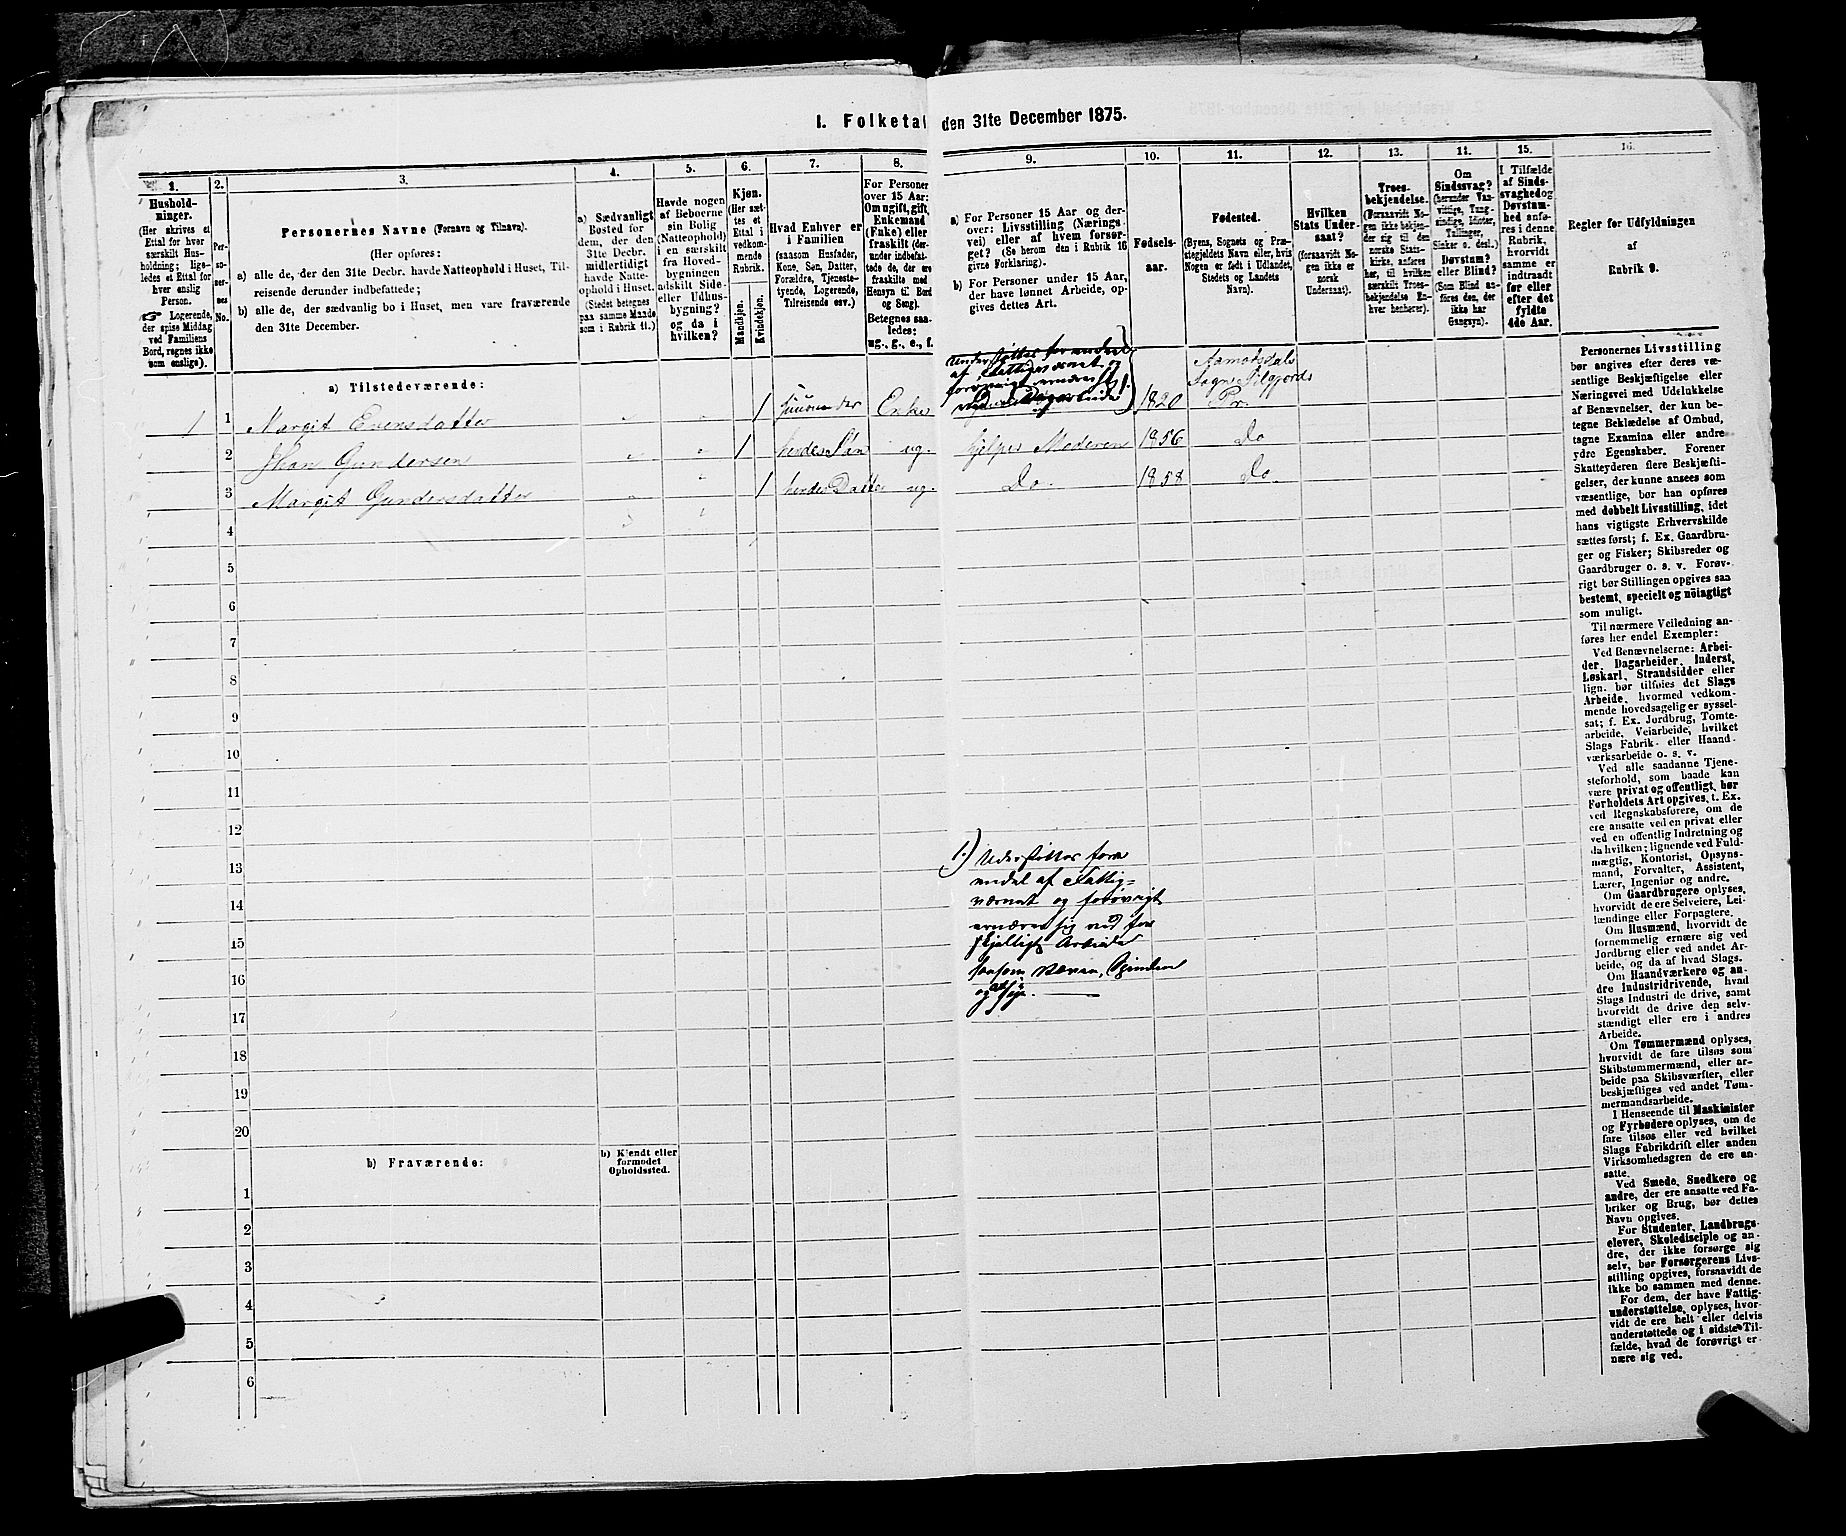 I. Folketal den 31te December 1875.
1.
Hushold-
ninger.
(Her skrives et
Ettal for hver
særskilt Hus-
holdning; lige-
ledes et Ettal for
hver enslig
Person.
☞ Logerende,
der spise Middag
ved Familiens
Bord, regnes ikke
som enslige).
2.
Per-
so-
ner-
nes
No.
3.
Personernes Navne (Fornavn og Tilnavn).
(Her opføres:
a) alle de, der den 31te Decbr. havde Natteophold i Huset, Til-
reisende derunder indbefattede;
b) alle de, der sædvanlig bo i Huset, men vare fraværende
den 31te December.
4.
a) Sædvanligt
Bosted for
dem, der den
31te Decbr.
midlertidigt
havde Natte-
ophold i Huset.
(Stedet betegnes
paa samme Maade
som i Rubrik 11.)
5.
Havde nogen
af Beboerne
sin Bolig
(Natteophold)
i en særskilt
fra Hoved-
bygningen
adskilt Side-
eller Udhus-
bygning?
og da i
hvilken?
6.
Kjøn.
(Her sæt-
tes et
Ettal i
vedkom-
mende
Rubrik.
Mandkjøn.
Kvindekjøn.
7.
Hvad Enhver er
i Familien
(saasom Husfader,
Kone, Søn, Datter,
Forældre, Tjeneste-
tyende, Logerende,
Tilreisende osv.)
8.
For Personer
over 15 Aar:
Om ugift, gift,
Enkemand
(Enke) eller
fraskilt (der-
under indbefat-
tede de, der ere
fraskilte med
Hensyn til Bord
og Seng).
Betegnes saa-
ledes:
ug., g., e., f.
9.
a) For Personer 15 Aar og der-
over: Livsstilling (Nærings-
vei) eller af hvem forsør-
get? (Se herom den i Rubrik 16
givne Forklaring).
b) For Personer under 15 Aar,
der have lønnet Arbeide, op-
gives dettes Art.
10.
Fødsels-
aar.
11.
Fødested.
(Byens, Sognets og Præ-
stegjeldets Navn eller, hvis
Nogen er født i Udlandet,
Stedets og Landets
Navn).
12.
Hvilken
Stats Under-
saat?
(forsaavidt No-
gen ikke er
norsk
Undersaat).
13.
Troes-
bekjendelse.
(Forsaavidt No-
gen ikke bekjen-
der sig til den
norske Stats-
kirke, anføres
her, til hvilken
særskilt Troes-
bekjendelse En-
hver henhører).
14.
Om
Sindssvag?
(herunder Van-
vittige, Tung-
sindige, Idioter,
Tullinger,
Sinker o. desl.)
Døvstum?
eller Blind?
(Som Blind an-
føres den, der
ikke har
Gangsyn).
15.
I Tilfælde
af Sinds-
svaghed og
Døvstum-
hed anfø-
res i denne
Rubrik,
hvorvidt
samme er
indtraadt
før eller
efter det
fyldte
4de Aar.
16.
Regler for Udfyldningen
af
Rubrik 9.
a) Tilstedeværende:
1 1 Margit Evensdatter 1 Huusmoder Enke Understøttes for endeel af Fattigvæsnet og forøvrigt 1820 Aamotsdals Sogn Silgjords Pr.
2 Jhan Gundersen 1 hendes Søn ug. hjelper Moderen 1856 Do
3 Margit Gundersdatter 1 hendes Datter ug. Do. 1858 Do.
4
5
6
7
8
9
10
11
12
13
14
15
16
17
18
19
20
1.) Understøttes for en
endel af Fattig=
væsnet og forøvrigt
ernærer sig ved for
skjelligt Arbeide
saasom Væven, Spinden
og at sye.
b) Fraværende:
b) Kjendt eller
formodet
Opholdssted.
1
2
3
4
5
6
Personernes Livsstilling
bør angives efter deres væ-
sentlige Beskjæftigelse eller
Næringsvei med Udelukkelse
af Benævnelser, der kun be-
tegne Beklædelse af Ombud,
tagne Examina eller andre
ydre Egenskaber. Forener
Skatteyderen flere Beskjæfti-
gelser, der kunne ansees som
væsentlige, bør han opføres
med dobbelt Livsstilling, idet
hans vigtigste Erhvervskilde
sættes først; f. Ex. Gaardbru-
ger og Fisker; Skibsreder og
Gaardbruger o. s. v. Forøv-
rigt bør Stillingen opgives saa
bestemt, specielt og nøiagtigt
som muligt.
Til nærmere Veiledning an-
føres her endel Exempler:
Ved Benævnelserne: Arbei-
der, Dagarbeider, Inderst,
Løskarl, Strandsidder eller
lign. bør tilføies det Slags
Arbeide, hvormed vedkom-
mende hovedsagelig er syssel-
sat; f. Ex. Jordbrug, Tomte-
arbeide, Veiarbeide, hvilket
Slags Fabrik- eller Haand-
værksarbeide o. s. v.
Ved alle saadanne Tjene-
steforhold, som baade kan
være privat og offentligt, bør
Forholdets Art opgives, t. Ex.
ved Regnskabsførere, om de
ere ansatte ved en privat eller
ved en offentlig Indretning og
da hvilken; lignende ved Fuld-
mægtig, Kontorist, Opsyns-
mand, Forvalter, Assistent,
Lærer, Ingeniør og andre.
Om Gaardbrugere oplyses,
hvorvidt de ere Selveiere, Lei-
lændinge eller Forpagtere.
Om Husmænd, hvorvidt de
fornemmelig ernære sig ved
Jordbrug eller ved andet Ar-
beide, og da af hvad Slags.
Om Haandværkere og an-
dre Industridrivende, hvad
Slags Industri de drive, samt
hvorvidt de drive den selv-
stændigt eller ere i andres
Arbeide.
Om Tømmermænd oplyses,
hvorvidt de fare tilsøs som
Skibstømmermænd, eller ar-
beide paa Skibsværfter, eller
beskjæftiges ved andet Tøm-
mermandsarbeide.
I Henseende til Maskinister
og Fyrbødere oplyses, om de
fare tilsøs eller ved hvilket
Slags Fabrikdrift eller anden
Virksomhedsgren de ere an-
satte.
Ved Smede, Snedkere og
andre, der ere ansatte ved Fa-
briker og Brug, bør dettes
Navn opgives.
For Studenter, Landbrugs-
elever, Skoledisciple og an-
dre, der ikke forsørge sig
selv, bør Forsørgerens Livs-
stilling opgives, forsaavidt de
ikke bo sammen med denne.
For dem, der have Fattig-
understøttelse, oplyses, hvor-
vidt de ere helt eller delvis
understøttede og i sidste Til-
fælde, hvad de forøvrigt er-
nære sig ved.